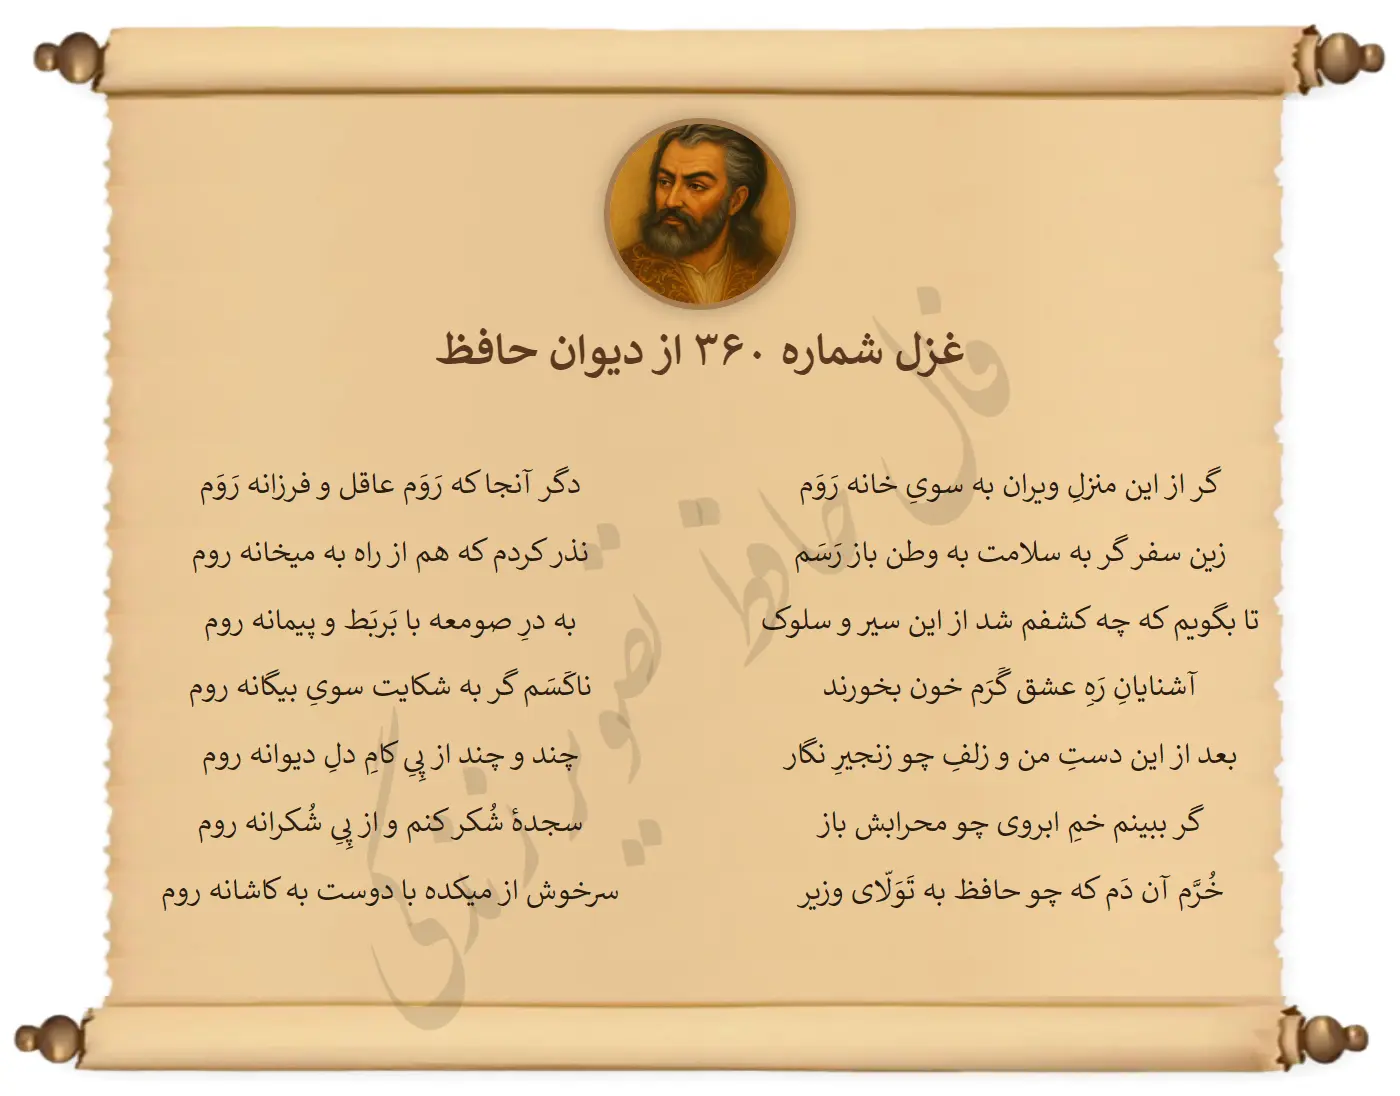 غزل شماره ۳۶۰ از دیوان حافظ
گر از این منزلِ ویران به سویِ خانه رَوَم
دگر آنجا که رَوَم عاقل و فرزانه رَوَم
زین سفر گر به سلامت به وطن باز رَسَم
نذر کردم که هم از راه به میخانه روم
تا بگویم که چه کشفم شد از این سیر و سلوک
به درِ صومعه با بَربَط و پیمانه روم
آشنایانِ رَهِ عشق گَرَم خون بخورند
ناکَسَم گر به شکایت سویِ بیگانه روم
بعد از این دستِ من و زلفِ چو زنجیرِ نگار
چند و چند از پِیِ کامِ دلِ دیوانه روم
گر ببینم خمِ ابروی چو محرابش باز
سجدهٔ شُکر کنم و از پِیِ شُکرانه روم
خُرَّم آن دَم که چو حافظ به تَوَلّای وزیر
سرخوش از میکده با دوست به کاشانه روم
فال حافظ تصویر زندگی